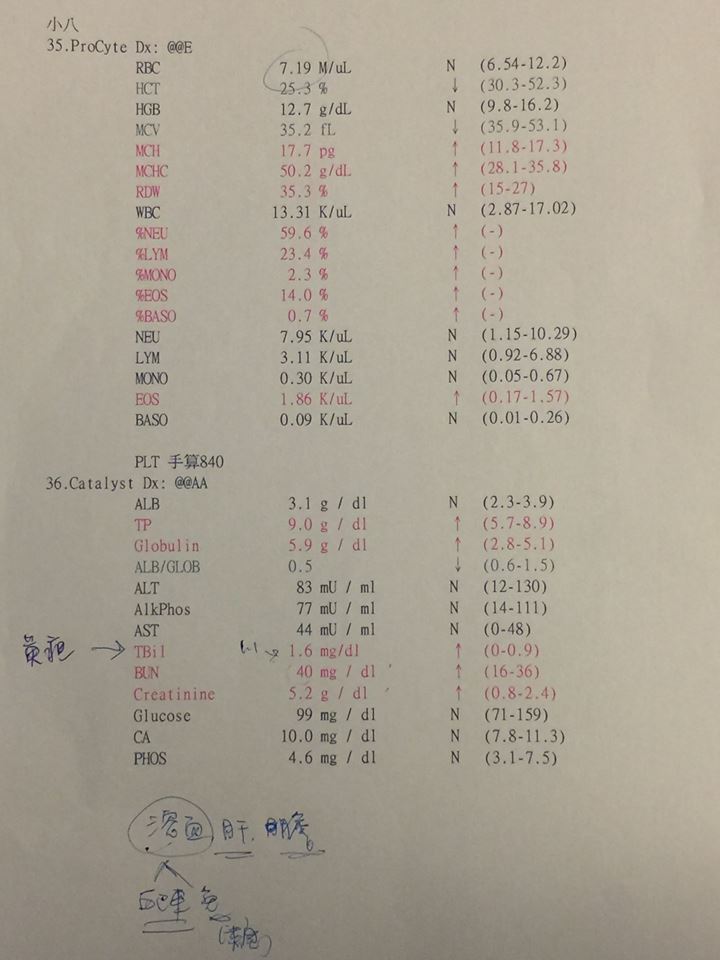 小八
35.ProCyte Dx: @@E
RBC 7.19 M/uL N (6.54-12.2)
HCT 25.3 % ↓ (30.3-52.3)
HGB 12.7 g/dL N (9.8-16.2)
MCV 35.2 fL ↓ (35.9-53.1)
MCH 17.7 pg ↑ (11.8-17.3)
MCHC 50.2 g/dL ↑ (28.1-35.8)
RDW 35.3 % ↑ (15-27)
WBC 13.31 K/uL N (2.87-17.02)
%NEU 59.6 % ↑ (-)
%LYM 23.4 % ↑ (-)
%MONO 2.3 % ↑ (-)
%EOS 14.0 % ↑ (-)
%BASO 0.7 % ↑ (-)
NEU 7.95 K/uL N (1.15-10.29)
LYM 3.11 K/uL N (0.92-6.88)
MONO 0.30 K/uL N (0.05-0.67)
EOS 1.86 K/uL ↑ (0.17-1.57)
BASO 0.09 K/uL N (0.01-0.26)
PLT 手算840
36.Catalyst Dx: @@AA
ALB 3.1 g / dl N (2.3-3.9)
TP 9.0 g / dl ↑ (5.7-8.9)
Globulin 5.9 g / dl ↑ (2.8-5.1)
ALB/GLOB 0.5 ↓ (0.6-1.5)
ALT 83 mU / ml N (12-130)
AlkPhos 77 mU / ml N (14-111)
AST 44 mU / ml N (0-48)
黃疸 → TBil 1.6 mg/dl ↑ (0-0.9)
BUN 40 mg / dl ↑ (16-36)
Creatinine 5.2 g / dl ↑ (0.8-2.4)
Glucose 99 mg / dl N (71-159)
CA 10.0 mg / dl N (7.8-11.3)
PHOS 4.6 mg / dl N (3.1-7.5)
溶血 肝, 膽